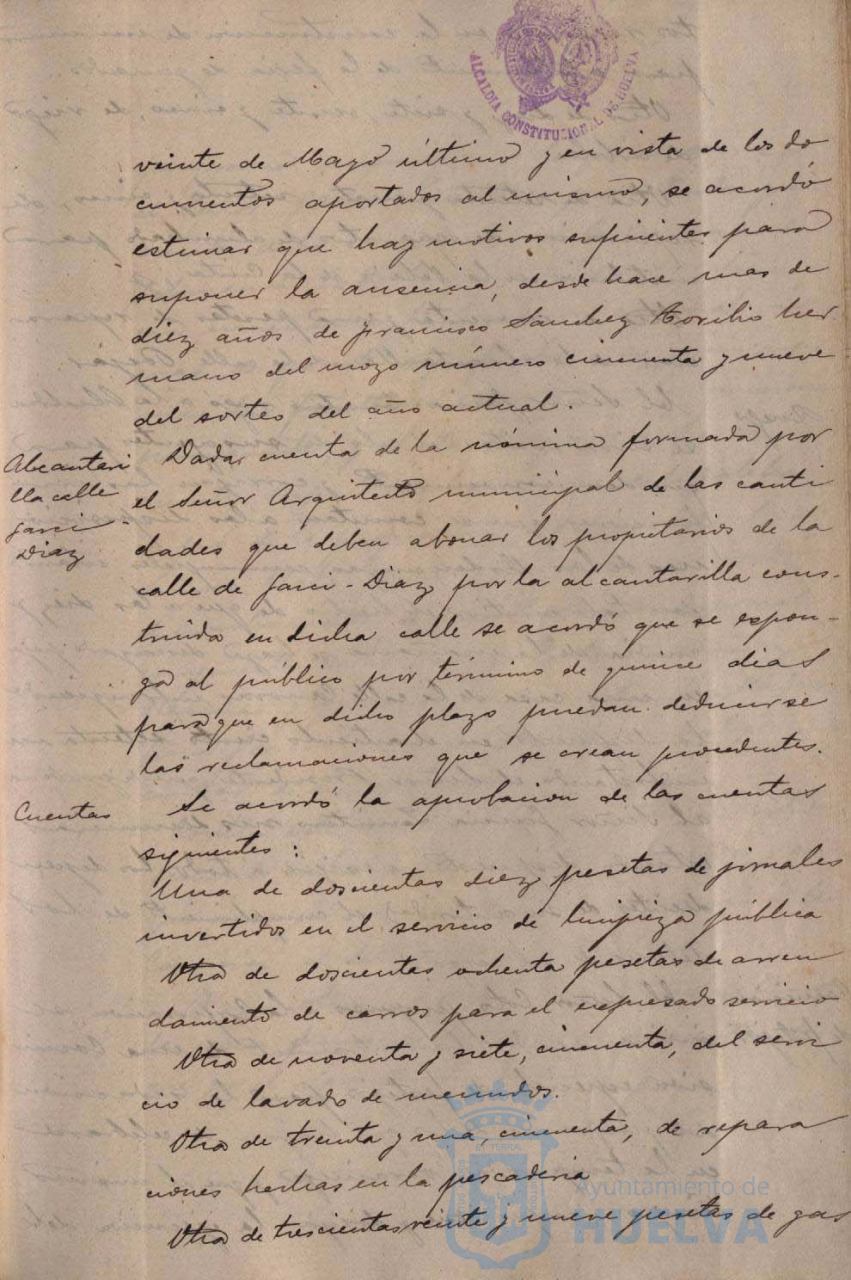 ALCALDIA CONSTITUCIONAL DE HUELVA
veinte de Mayo último y en vista de los do
cumentos aportados al mismo, se acordó
estimar que hay motivos suficientes para
suponer la ausencia, desde hace mas de
diez años de Francisco Sanchez Torilio her
mano del mozo número cincuenta y nueve
del sorteo del año actual.
Alcantari
lla calle
Garci-
Diaz
Dada cuenta de la nómina formada por
el Señor Arquitecto municipal de las canti
dades que deben abonar los propietarios de la
calle de Garci-Diaz por la alcantarilla cons-
truida en dicha calle se acordó que se espon-
ga al público por término de quince dias
para que en dicho plazo puedan deducirse
las reclamaciones que se crean procedentes.
Cuentas
Se acordó la aprobacion de las cuentas
siguientes:
Una de doscientas diez pesetas de jornales
invertidos en el servicio de limpieza pública
Otra de doscientas ochenta pesetas de arren
damiento de carros para el expresado servicio
Otra de noventa y siete, cincuenta, del servi
cio de lavado de menudos.
Otra de treinta y una, cincuenta, de repara
ciones hechas en la pescaderia
Otra de trescientas veinte y nueve pesetas de gas
Ayuntamiento de
HUELVA